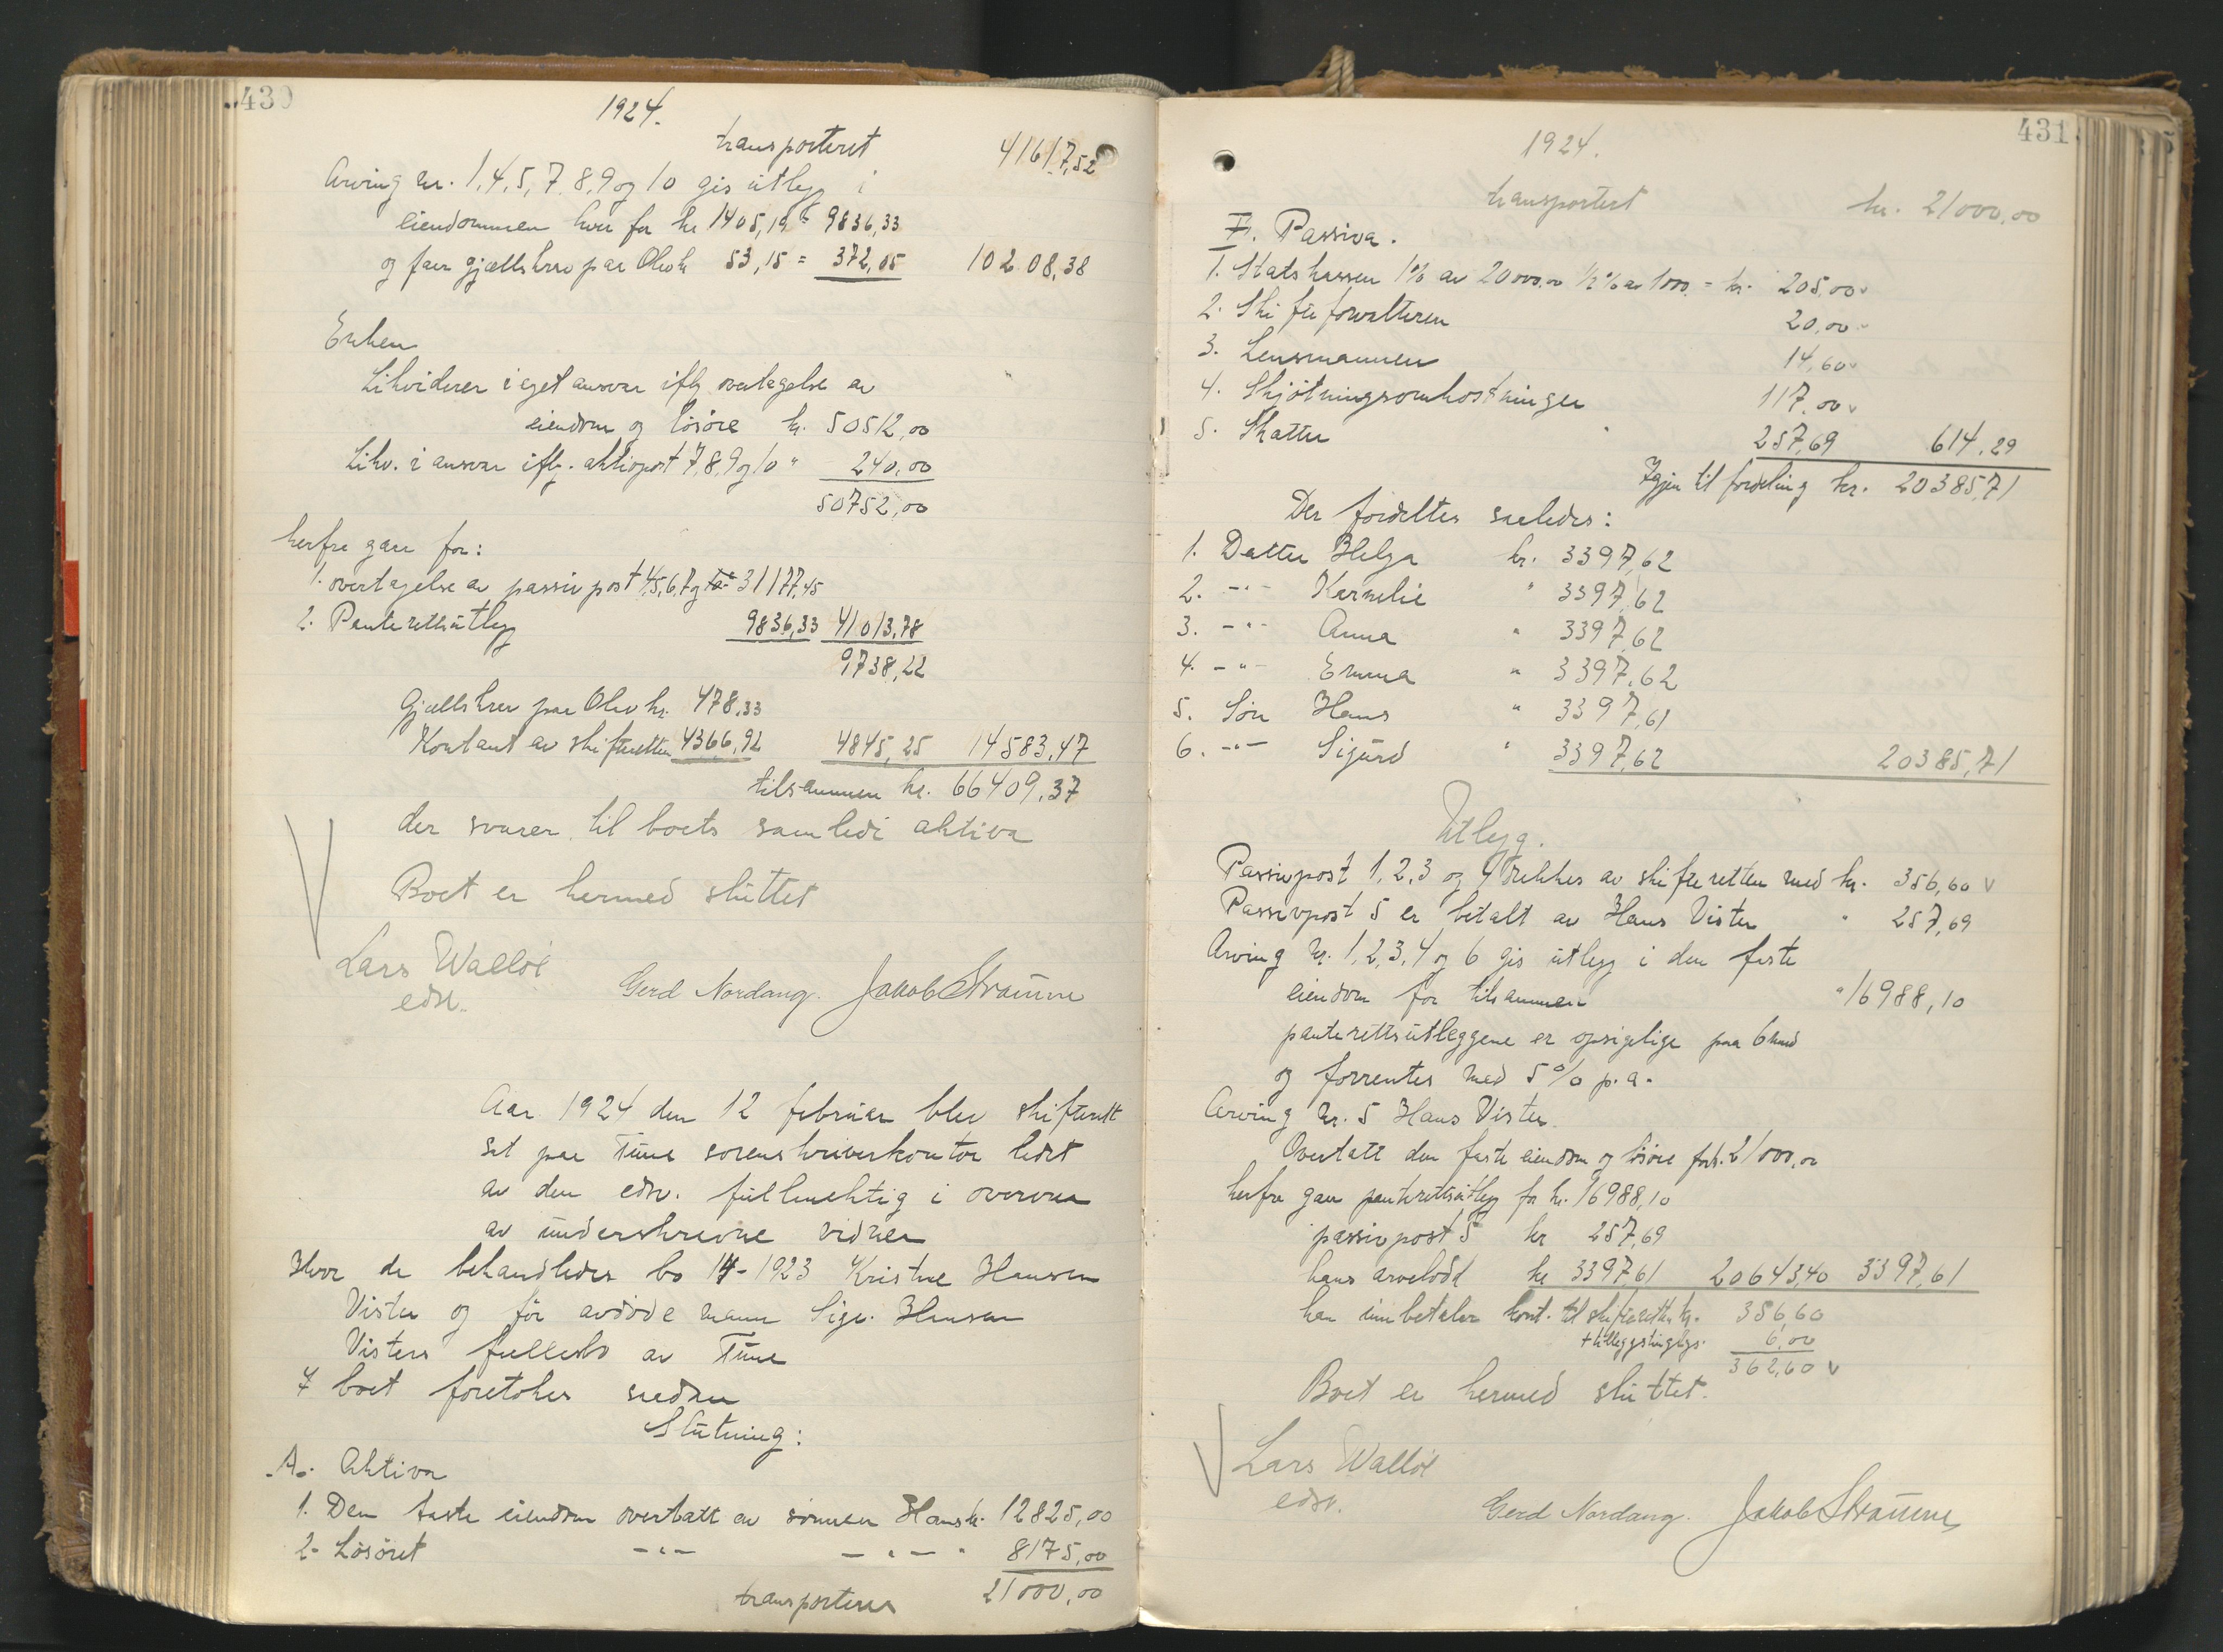 430
1924.
transporteret 41617,52
Arving nr. 1, 4, 5, 7, 8, 9 og 10 gis utlegg i
eiendommen hver for kr 1405,19 = 9836,33
og faar gjælds krav paa Olav kr 53,15 = 372,05 10208,38
Enken
Likviderer i eget ansvar iflg. overtagelse av
eiendom og løsøre kr. 50512,00
Likv. i ansvar iflg. aktivpost 7, 8, 9 og 10 " 240,00
50752,00
herfra gaar for:
1. overtagelse av passiv post 4, 5, 6, 7 og 31177,45
2. Panterettsutlegg 9836,33 41013,78
9738,22
Gjælds krav paa Olav kr. 478,33
Kontant av skifteretten 4366,92 4845,25 14583,47
tilsammen kr. 66409,37
der svarer til boets samlede aktiva
Boet er hermed sluttet
Lars Walløe
edsv.
Gerd Nordang. Jakob Straume
Aar 1924 den 12 februar blev skifterett
sat paa Tune sorenskriverkontor ledet
av den edsv. fullmektig i overvær
av underskrevne vidner
Hvor da behandledes bo 14-1923 Kristine Hansen
Vister og før avdøde mann Sigv. Hansen
Visters fællesbo av Tune
I boet foretokes saadan
Slutning:
A. Aktiva
1. Den faste eiendom overtatt av sønnen Hans kr. 12825,00
2. Løsøret -"- -"- " 8175,00
transporteres 21000,00
431
1924.
transportert kr. 21000,00
F. Passiva.
1. Statskassen 1% av 20000,00 ½% av 1000 = kr. 205,00
2. Skifteforvalteren 20,00
3. Lensmannen 14,60
4. Skjøtningsomkostninger 117,00
5. Skatter 257,69 614,29
Igjen til fordeling kr. 20385,71
Der fordeltes saaledes:
1. Datter Helga kr. 3397,62
2. -"- Karnelie " 3397,62
3. -"- Anna " 3397,62
4. -"- Emma " 3397,62
5. Søn Hans " 3397,61
6. -"- Sigurd " 3397,62 20385,71
Utlegg.
Passivpost 1, 2, 3 og 4 dekkes av skifteretten med kr. 356,60
Passivpost 5 er betalt av Hans Vister " 257,69
Arving nr. 1, 2, 3, 4 og 6 gis utlegg i den faste
eiendom for tilsammen " 16988,10
panterettsutleggene er opsigelige paa 6 mnd
og forrentes med 5% p.a.
Arving nr. 5 Hans Vister
Overtatt den faste eiendom og løsøre for kr. 21000,00
herfra gaar panterettsutlegg for kr. 16988,10
passivpost 5 kr 257,69
hans arvelodd kr 3397,61 20643,40 3397,61
han innbetaler kont. til skifteretten kr. 356,60
+ tilleggstinglys. 6,00
362,60
Boet er hermed sluttet.
Lars Walløe
edsv.
Gerd Nordang. Jakob Straume